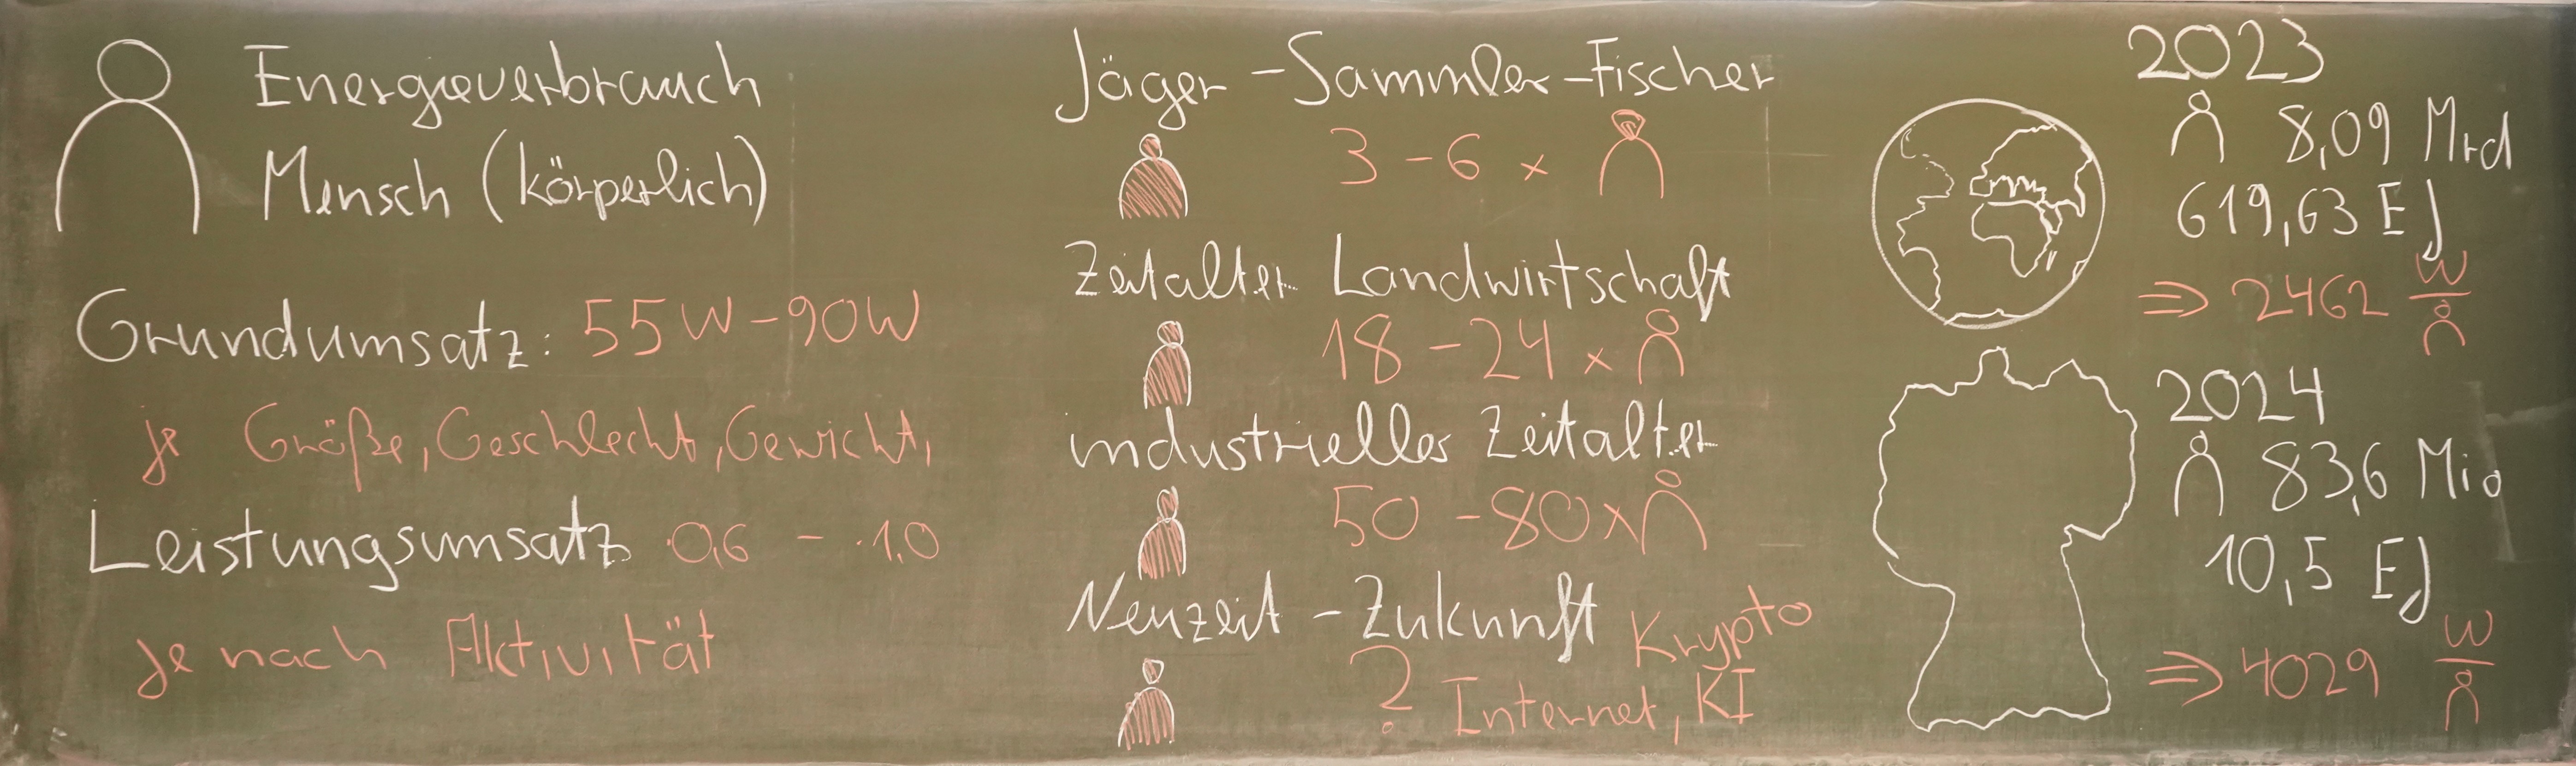 Energieverbrauch
Mensch (körperlich)
Grundumsatz: 55W-90W
je Größe, Geschlecht, Gewicht,
Leistungsumsatz ·0,6 - ·1,0
je nach Aktivität
Jäger-Sammler-Fischer
3-6 x
Zeitalter Landwirtschaft
18-24 x
industrielles Zeitalter
50-80 x
Neuzeit-Zukunft Krypto
? Internet, KI
2023
8,09 Mrd
619,63 EJ
⇒ 2462 W
2024
83,6 Mio
10,5 EJ
⇒ 4029 W